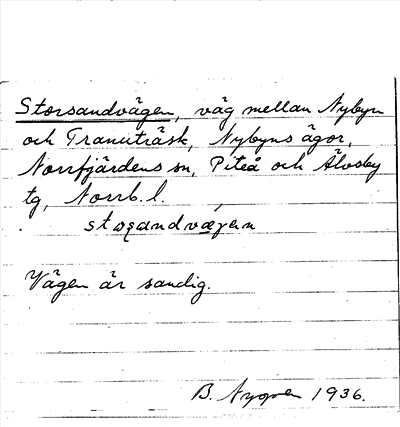 Storsandvägen, väg mellan Nybyn
och Tranuträsk, Nybyns ägor,
Norrfjärdens sn, Piteå och Älvsby
tg, Norrb. l.
Vägen är sandig.
B. Nygren 1936.